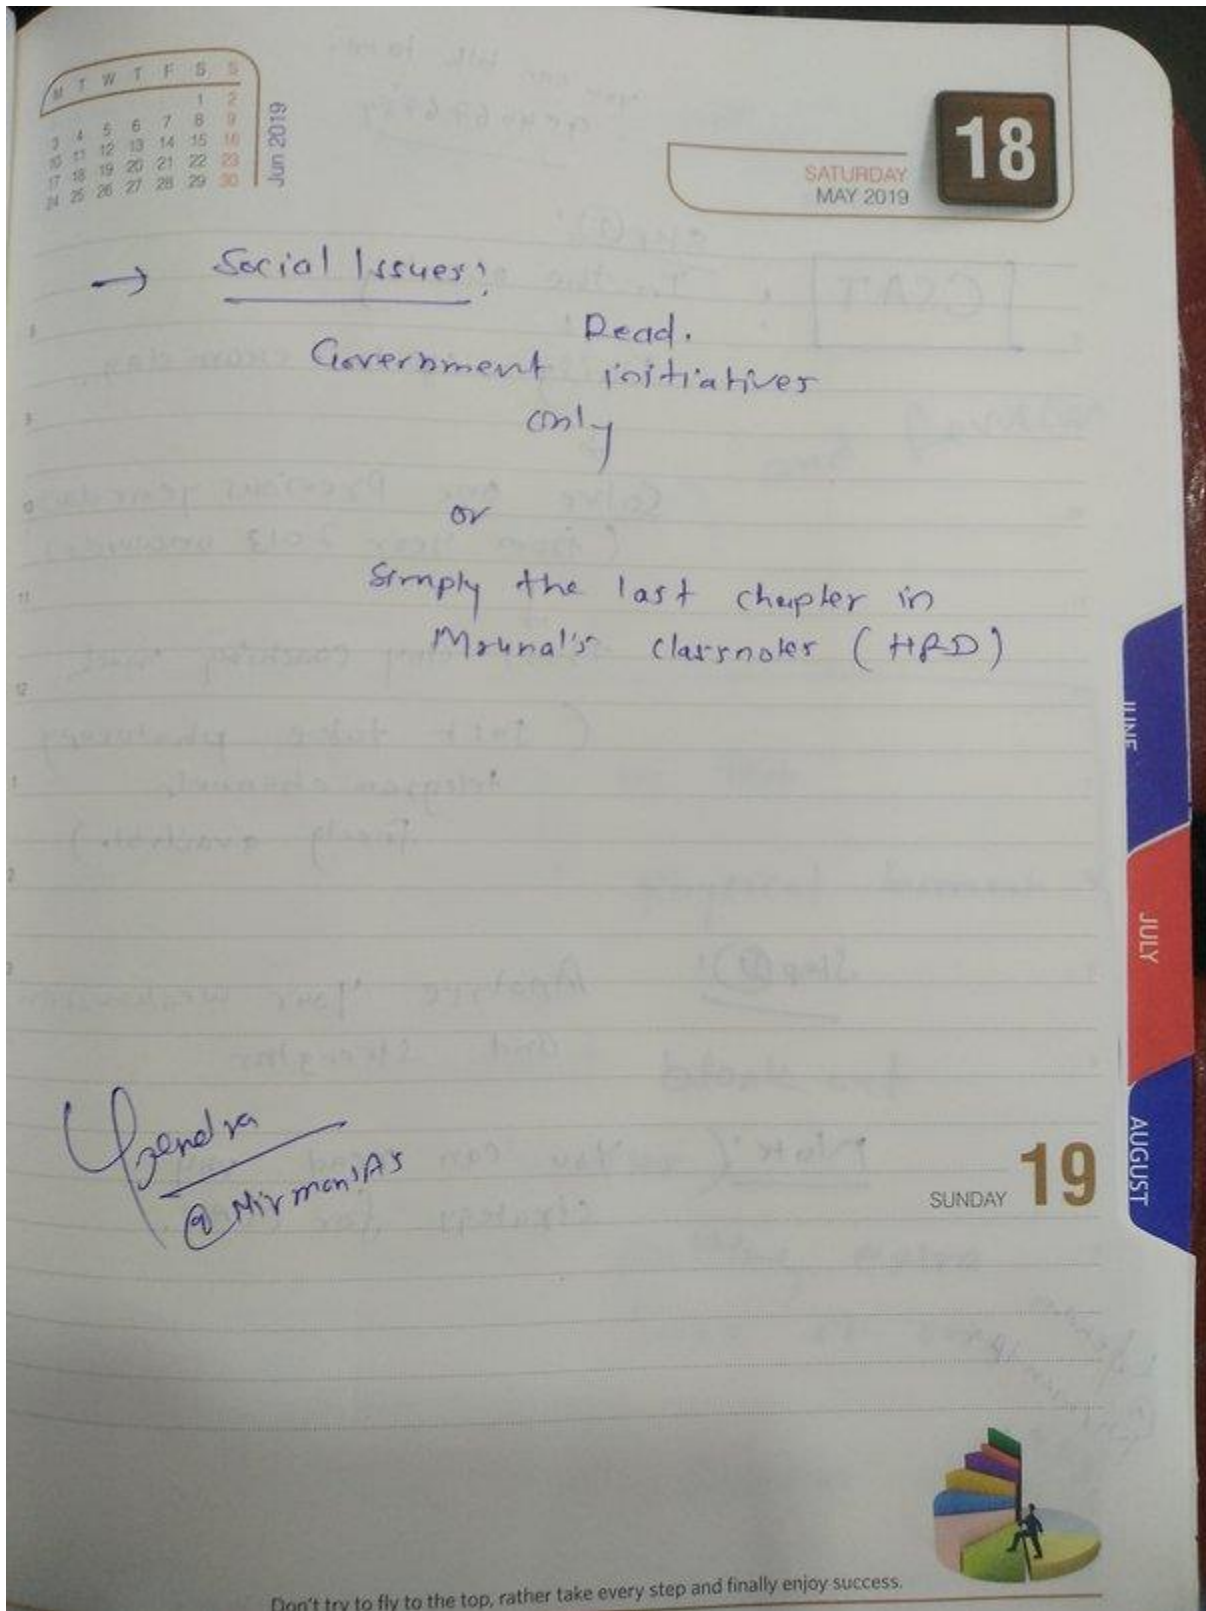 M T W T F S S
1 2
3 4 5 6 7 8 9
10 11 12 13 14 15 16
17 18 19 20 21 22 23
24 25 26 27 28 29 30
Jun 2019
18
SATURDAY
MAY 2019
→ Social Issues:
Read.
Government initiatives
only
or
Simply the last chapter in
Mrunal's classnotes (HRD)
JUNE
JULY
AUGUST
@NirmanIAS
SUNDAY 19
Don't try to fly to the top, rather take every step and finally enjoy success.